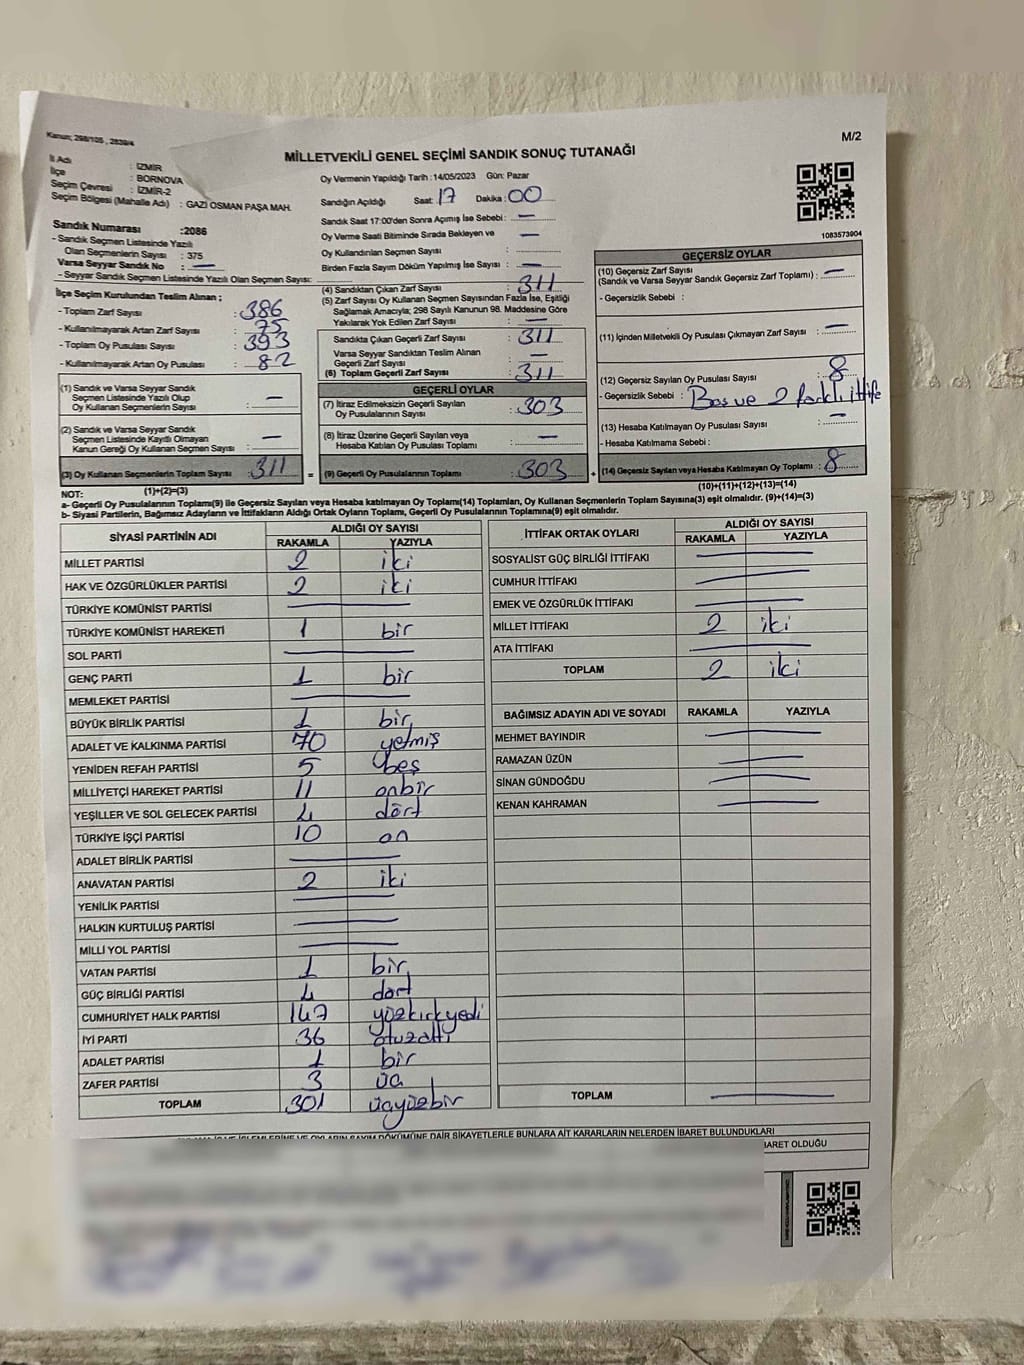 Kanun; 298/105 , 2839/4
M/2
MİLLETVEKİLİ GENEL SEÇİMİ SANDIK SONUÇ TUTANAĞI
İl Adı : İZMİR
İlçe : BORNOVA
Seçim Çevresi : İZMİR-2
Seçim Bölgesi (Mahalle Adı) : GAZİ OSMAN PAŞA MAH.
Oy Vermenin Yapıldığı Tarih :14/05/2023 Gün: Pazar
Sandığın Açıldığı Saat: 17 Dakika: 00
Sandık Saat 17:00'den Sonra Açımış İse Sebebi : —
Oy Verme Saati Bitiminde Sırada Bekleyen ve —
Oy Kullandırılan Seçmen Sayısı :
Birden Fazla Sayım Döküm Yapılmış İse Sayısı : —
1083573904
Sandık Numarası :2086
- Sandık Seçmen Listesinde Yazılı
Olan Seçmenlerin Sayısı : 375
Varsa Seyyar Sandık No —
- Seyyar Sandık Seçmen Listesinde Yazılı Olan Seçmen Sayısı:
İlçe Seçim Kurulundan Teslim Alınan ;
- Toplam Zarf Sayısı : 386
- Kullanılmayarak Artan Zarf Sayısı : 75
- Toplam Oy Pusulası Sayısı : 393
- Kullanılmayarak Artan Oy Pusulası : 82
(1) Sandık ve Varsa Seyyar Sandık
Seçmen Listesinde Yazılı Olup
Oy Kullanan Seçmenlerin Sayısı : —
(2) Sandık ve Varsa Seyyar Sandık
Seçmen Listesinde Kayıtlı Olmayan
Kanun Gereği Oy Kullanan Seçmen Sayısı : —
(3) Oy Kullanan Seçmenlerin Toplam Sayısı : 311
(1)+(2)=(3)
(4) Sandıktan Çıkan Zarf Sayısı : 311
(5) Zarf Sayısı Oy Kullanan Seçmen Sayısından Fazla İse, Eşitliği
Sağlamak Amacıyla; 298 Sayılı Kanunun 98. Maddesine Göre
Yakılarak Yok Edilen Zarf Sayısı : —
Sandıkta Çıkan Geçerli Zarf Sayısı : 311
Varsa Seyyar Sandıktan Teslim Alınan
Geçerli Zarf Sayısı : —
(6) Toplam Geçerli Zarf Sayısı : 311
GEÇERLİ OYLAR
(7) İtiraz Edilmeksizin Geçerli Sayılan
Oy Pusulalarının Sayısı : 303
(8) İtiraz Üzerine Geçerli Sayılan veya
Hesaba Katılan Oy Pusulası Toplamı : —
= (9) Geçerli Oy Pusulalarının Toplamı : 303
GEÇERSİZ OYLAR
(10) Geçersiz Zarf Sayısı : —
(Sandık ve Varsa Seyyar Sandık Geçersiz Zarf Toplamı)
- Geçersizlik Sebebi :
(11) İçinden Milletvekili Oy Pusulası Çıkmayan Zarf Sayısı : —
(12) Geçersiz Sayılan Oy Pusulası Sayısı : 8
- Geçersizlik Sebebi : Boş ve 2 farklı ittife
(13) Hesaba Katılmayan Oy Pusulası Sayısı : —
- Hesaba Katılmama Sebebi :
+ (14) Geçersiz Sayılan veya Hesaba Katılmayan Oy Toplamı : 8
(10)+(11)+(12)+(13)=(14)
NOT:
a- Geçerli Oy Pusulalarının Toplamı(9) ile Geçersiz Sayılan veya Hesaba katılmayan Oy Toplamı(14) Toplamları, Oy Kullanan Seçmenlerin Toplam Sayısına(3) eşit olmalıdır. (9)+(14)=(3)
b- Siyasi Partilerin, Bağımsız Adayların ve İttifakların Aldığı Ortak Oyların Toplamı, Geçerli Oy Pusulalarının Toplamına(9) eşit olmalıdır.
SİYASİ PARTİNİN ADI ALDIĞI OY SAYISI
RAKAMLA YAZIYLA
MİLLET PARTİSİ 2 iki
HAK VE ÖZGÜRLÜKLER PARTİSİ 2 iki
TÜRKİYE KOMÜNİST PARTİSİ —
TÜRKİYE KOMÜNİST HAREKETİ 1 bir
SOL PARTİ —
GENÇ PARTİ 1 bir
MEMLEKET PARTİSİ —
BÜYÜK BİRLİK PARTİSİ 1 bir
ADALET VE KALKINMA PARTİSİ 70 yetmiş
YENİDEN REFAH PARTİSİ 5 beş
MİLLİYETÇİ HAREKET PARTİSİ 11 onbir
YEŞİLLER VE SOL GELECEK PARTİSİ 4 dört
TÜRKİYE İŞÇİ PARTİSİ 10 on
ADALET BİRLİK PARTİSİ —
ANAVATAN PARTİSİ 2 iki
YENİLİK PARTİSİ —
HALKIN KURTULUŞ PARTİSİ —
MİLLİ YOL PARTİSİ —
VATAN PARTİSİ 1 bir
GÜÇ BİRLİĞİ PARTİSİ 4 dört
CUMHURİYET HALK PARTİSİ 147 yüzkırkyedi
İYİ PARTİ 36 otuzaltı
ADALET PARTİSİ 1 bir
ZAFER PARTİSİ 3 üç
TOPLAM 301 üçyüzbir
İTTİFAK ORTAK OYLARI ALDIĞI OY SAYISI
RAKAMLA YAZIYLA
SOSYALİST GÜÇ BİRLİĞİ İTTİFAKI —
CUMHUR İTTİFAKI —
EMEK VE ÖZGÜRLÜK İTTİFAKI —
MİLLET İTTİFAKI 2 iki
ATA İTTİFAKI —
TOPLAM 2 iki
BAĞIMSIZ ADAYIN ADI VE SOYADI RAKAMLA YAZIYLA
MEHMET BAYINDIR —
RAMAZAN ÜZÜN —
SİNAN GÜNDOĞDU —
KENAN KAHRAMAN —
TOPLAM —
OYLARIN SAYIM DÖKÜMÜNE DAİR ŞİKAYETLERLE BUNLARA AİT KARARLARIN NELERDEN İBARET BULUNDUKLARI
İBARET OLDUĞU